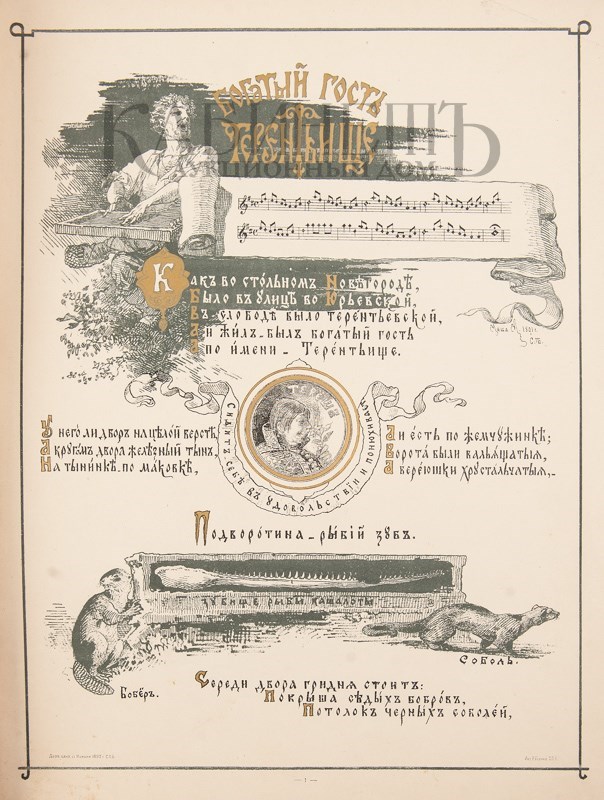 Богатый гость
Терентьище
КАБИНЕТЪ
АУКЦИОННЫЙ ДОМ
Какъ во стольномъ Новѣгородѣ,
Было въ улицѣ во Юрьевской,
Въ слободѣ было Терентьевской,
А и жилъ-былъ богатый гость
А по имени - Терентьище.
ТЕРЕША
Сидитъ себѣ въ удовольствіи и понюхиваетъ
У него ли дворъ на цѣлой верстѣ,
А кругомъ двора желѣзный тынъ,
На тынинкѣ по маковкѣ,
А и есть по жемчужинкѣ;
Ворота были вальящатыя,
А вереюшки хрустальчатыя,-
Подворотина - рыбій зубъ.
ЗУБИЩЕ РЫБЫ КАШАЛОТЫ
Боберъ.
Соболь.
Середи двора гридня стоитъ:
Покрыша сѣдыхъ бобровъ,
Потолокъ черныхъ соболей,
— 1 —